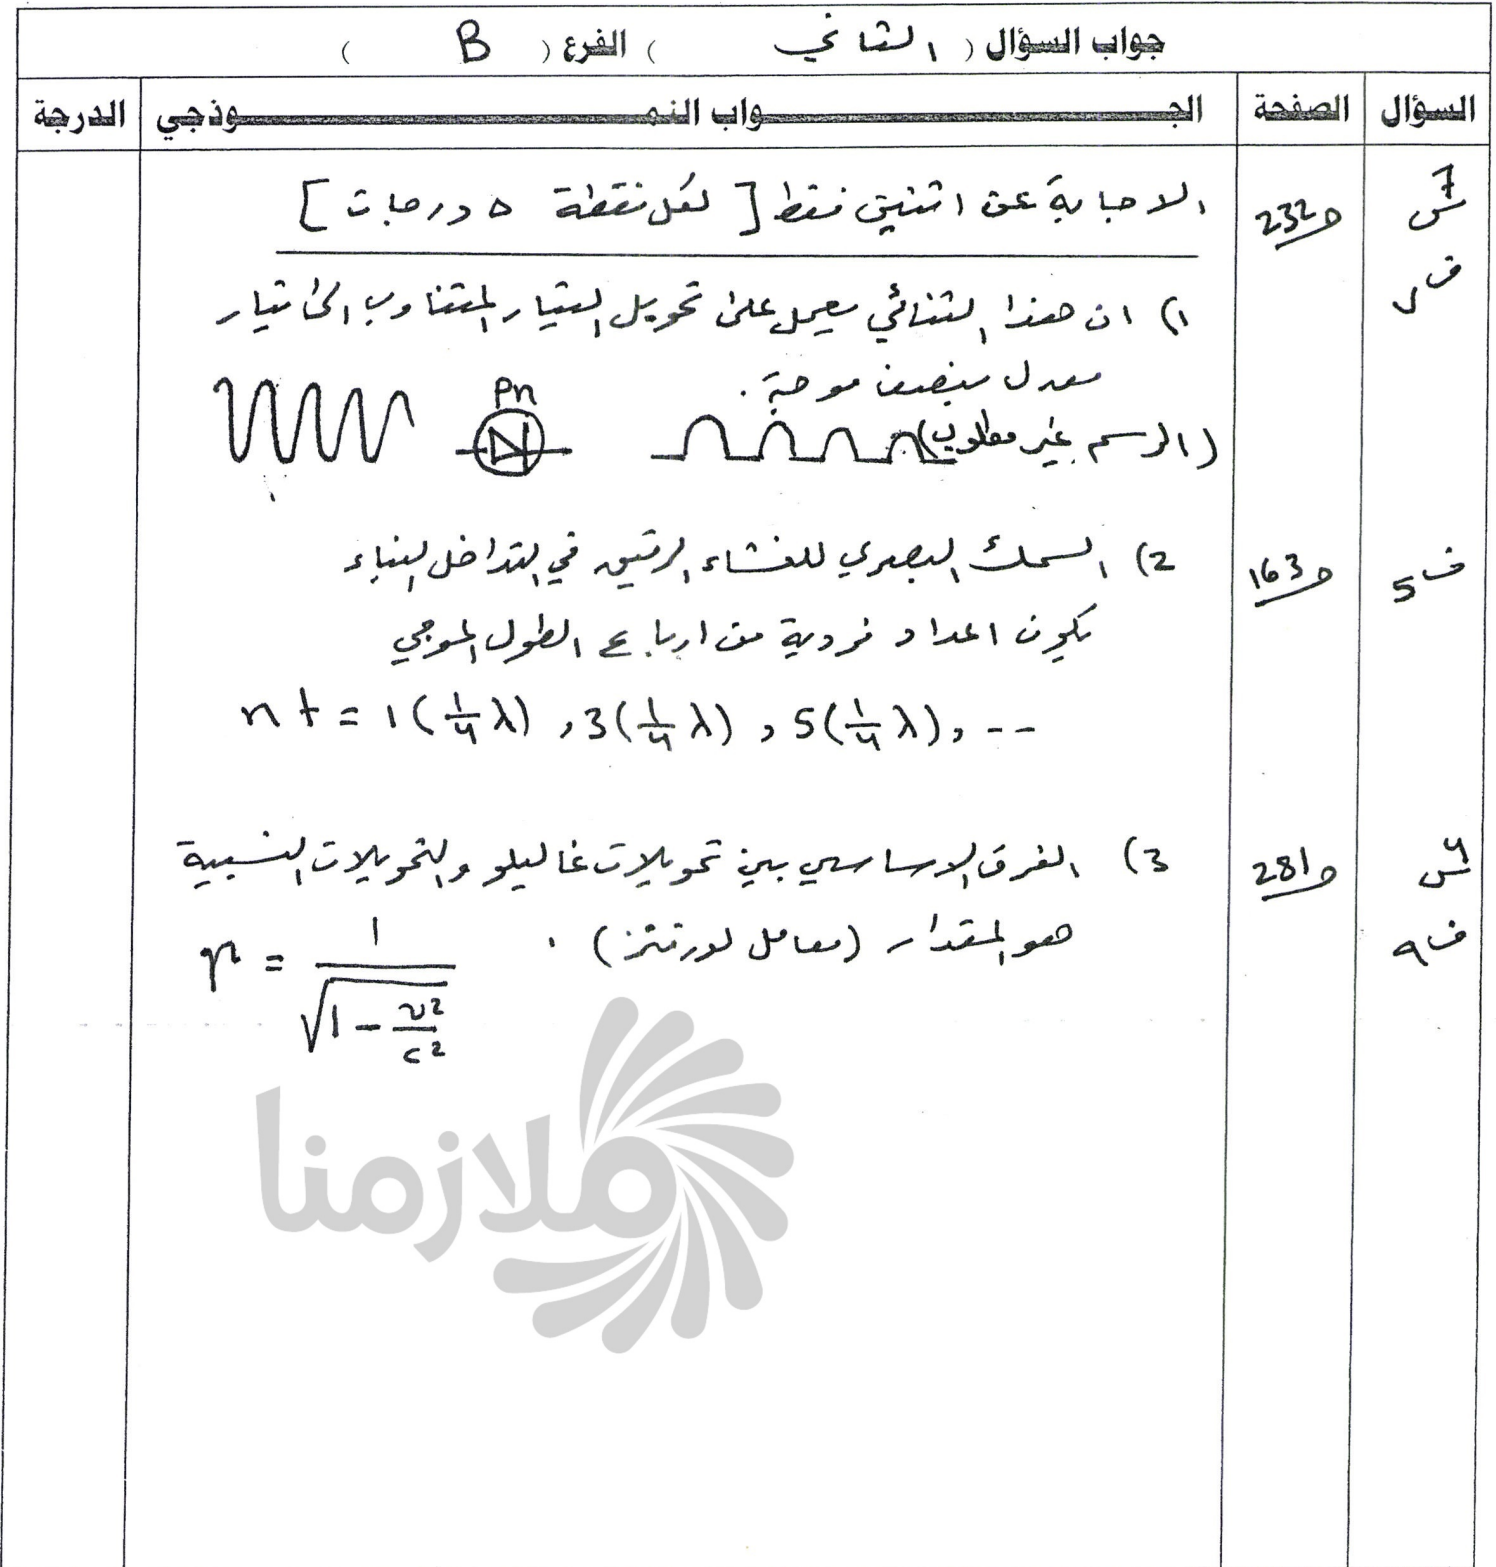 جواب السؤال ( الثاني ) الفرع ( B )
السؤال الصفحة الجــواب النمــوذجي الدرجة
س7 ص232 الاجابة عن اثنين فقط [ لكل نقطة ٥ درجات ]
ف٧ 1) ان هذا الثنائي يعمل على تحويل التيار المتناوب الى تيار
معدل بنصف موجة .
Pn
(الرسم غير مطلوب)
ف5 ص163 2) السمك البصري للغشاء الرقيق في التداخل البناء
يكون اعداد فردية من ارباع الطول الموجي
nt = 1(1/4 λ) , 3(1/4 λ) , 5(1/4 λ), --
س9 ص281 3) الفرق الاساسي بين تحويلات غاليلو والتحويلات النسبية
ف٩ هو المقدار (معامل لورنتز) . γ = 1 / √(1 - v²/c²)
ملازمنا